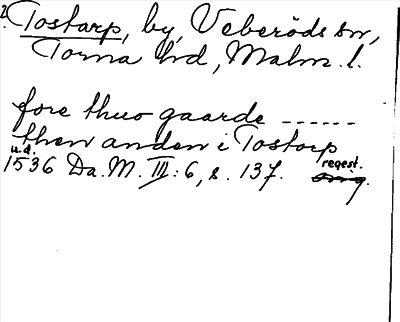 2. Tostarp, by, Veberöds sn,
Torna hd, Malm. l.
fore thuo gaarde ------
then anden i Tostorp
u.d. regest.
1536 Da. M. III: 6, s. 137. orig.